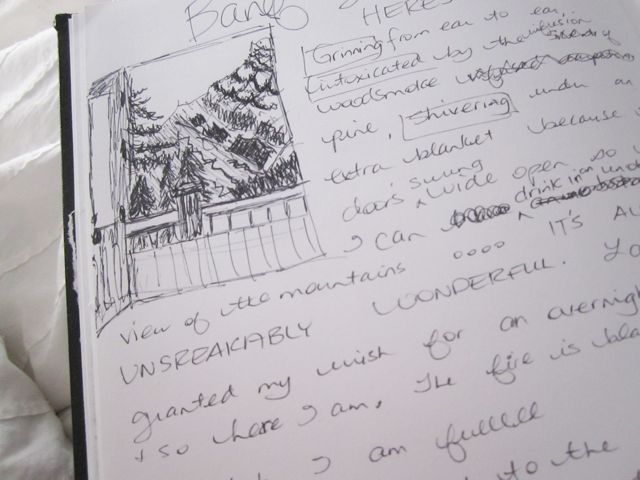 Banff
HERE
Grinning from ear to ear,
intoxicated by the infusion
woodsmoke
pine, shivering under an
extra blanket because
doors swung wide open so
I can drink in
view of the mountains oooo IT'S AL
UNSPEAKABLY WONDERFUL. Yo
granted my wish for an overnigh
+ so here I am. The fire is bla
I am fullll
to the